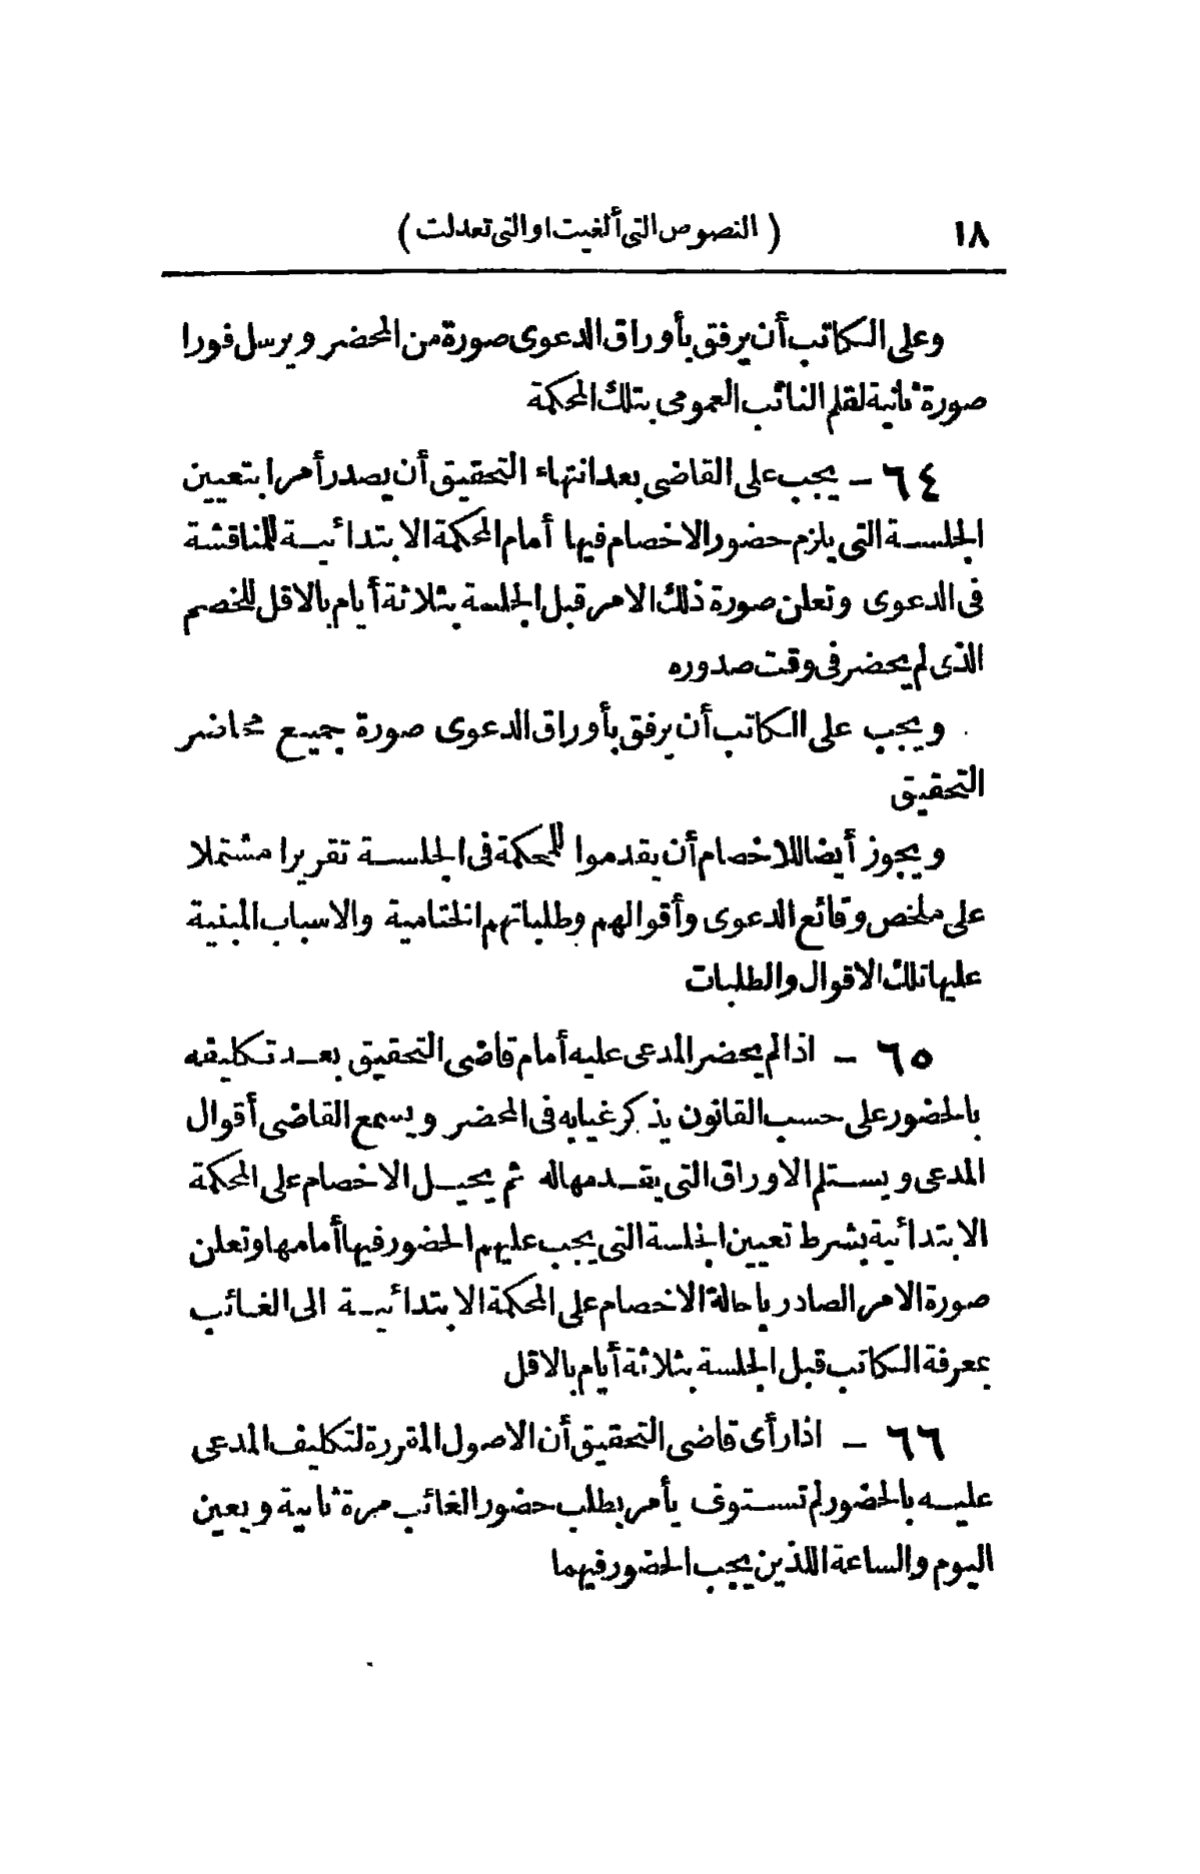 ١٨ ( النصوص التى ألغيت او التى تعدلت )
وعلى الكاتب أن يرفق بأوراق الدعوى صورة من المحضر ويرسل فورا
صورة ثانية لقلم النائب العمومى بتلك المحكمة
٦٤ – يجب على القاضى بعد انتهاء التحقيق أن يصدر أمرا بتعيين
الجلسة التى يلزم حضور الاخصام فيها أمام المحكمة الابتدائية للمناقشة
فى الدعوى وتعلن صورة ذلك الامر قبل الجلسة بثلاثة أيام بالاقل للخصم
الذى لم يحضر فى وقت صدوره
ويجب على الكاتب أن يرفق بأوراق الدعوى صورة جميع محاضر
التحقيق
ويجوز أيضا للاخصام أن يقدموا للمحكمة فى الجلسة تقريرا مشتملا
على ملخص وقائع الدعوى وأقوالهم وطلباتهم الختامية والاسباب المبنية
عليها تلك الاقوال والطلبات
٦٥ – اذا لم يحضر المدعى عليه أمام قاضى التحقيق بعد تكليفه
بالحضور على حسب القانون يذكر غيابه فى المحضر ويسمع القاضى أقوال
المدعى ويستلم الاوراق التى يقدمها له ثم يحيل الاخصام على المحكمة
الابتدائية بشرط تعيين الجلسة التى يجب عليهم الحضور فيها أمامها وتعلن
صورة الامر الصادر باحالة الاخصام على المحكمة الابتدائية الى الغائب
بمعرفة الكاتب قبل الجلسة بثلاثة أيام بالاقل
٦٦ – اذا رأى قاضى التحقيق أن الاصول المقررة لتكليف المدعى
عليه بالحضور لم تستوف يأمر بطلب حضور الغائب مرة ثانية ويعين
اليوم والساعة اللذين يجب الحضور فيهما